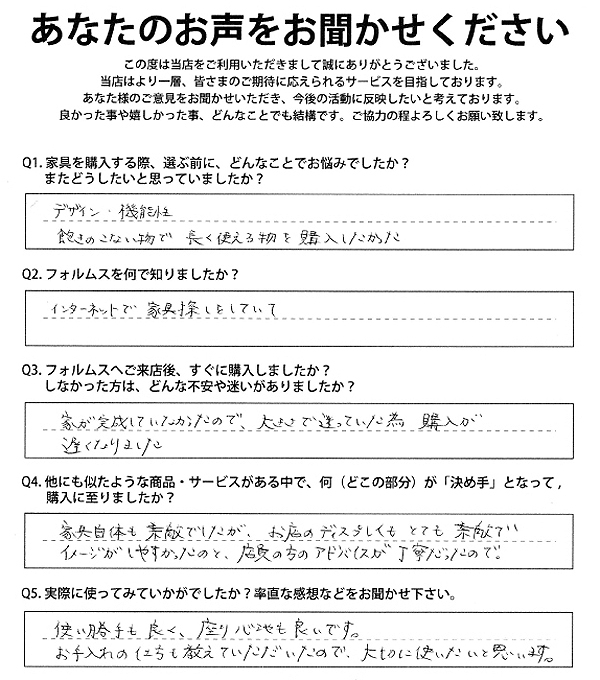 あなたのお声をお聞かせください
この度は当店をご利用いただきまして誠にありがとうございました。
当店はより一層、皆さまのご期待に応えられるサービスを目指しております。
あなた様のご意見をお聞かせいただき、今後の活動に反映したいと考えております。
良かった事や嬉しかった事、どんなことでも結構です。ご協力の程よろしくお願い致します。
Q1. 家具を購入する際、選ぶ前に、どんなことでお悩みでしたか？
またどうしたいと思っていましたか？
デザイン・機能性
飽きのこない物で 長く使える物を購入したかった
Q2. フォルムスを何で知りましたか？
インターネットで 家具探しをしていて
Q3. フォルムスへご来店後、すぐに購入しましたか？
しなかった方は、どんな不安や迷いがありましたか？
家が完成していなかったので、大きさで迷っていた為 購入が
遅くなりました
Q4. 他にも似たような商品・サービスがある中で、何（どこの部分）が「決め手」となって，
購入に至りましたか？
家具自体も素敵でしたが、お店のディスプレイもとても素敵で
イメージがしやすかったのと、店員の方のアドバイスが丁寧だったので。
Q5. 実際に使ってみていかがでしたか？率直な感想などをお聞かせ下さい。
使い勝手も良く、座り心地も良いです。
お手入れの仕方も教えていただいたので、大切に使いたいと思います。